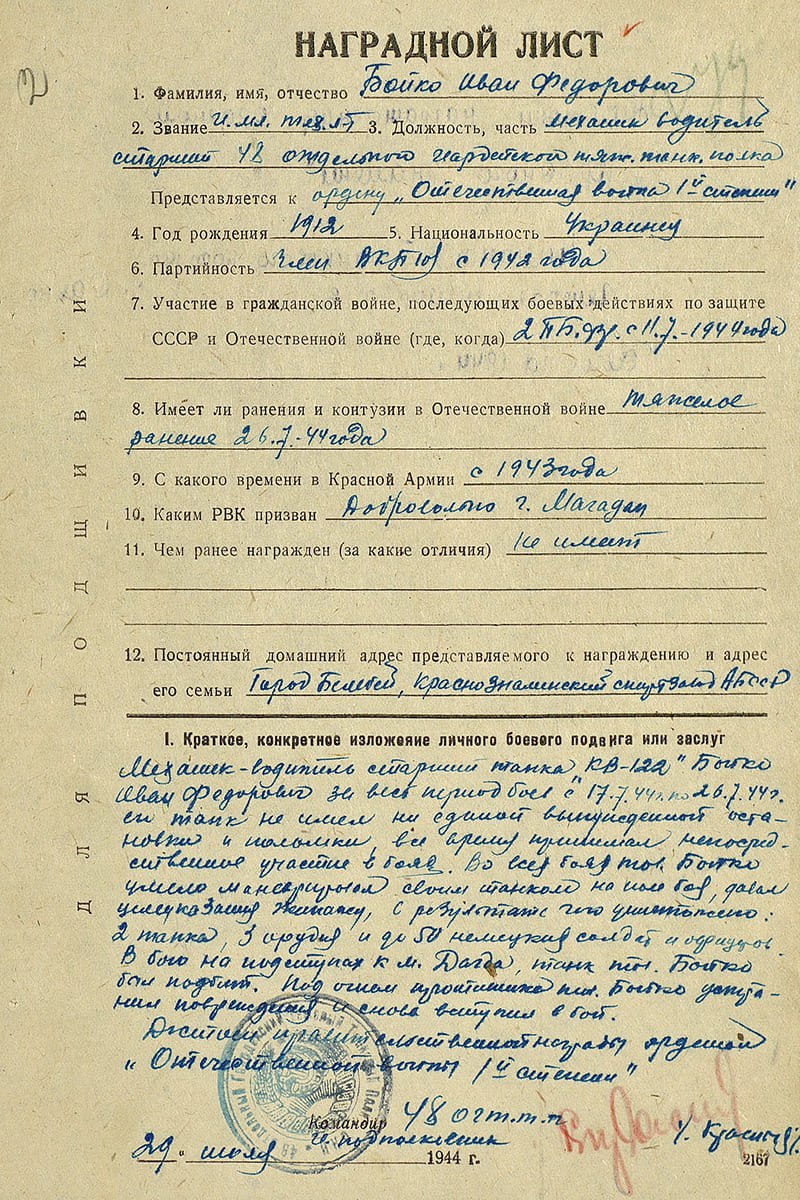 НАГРАДНОЙ ЛИСТ
1. Фамилия, имя, отчество Бойко Иван Федорович
2. Звание 3. Должность, часть механик водитель
старший 48 отдельного гвардейского тяж. танк. полка
Представляется к ордену „Отечественная война 1й степени"
4. Год рождения 1912 5. Национальность Украинец
6. Партийность Член ВКП(б) с 1942 года
7. Участие в гражданской войне, последующих боевых действиях по защите
СССР и Отечественной войне (где, когда) 2 ПБ. фр. с 11.7.-1944 года
8. Имеет ли ранения и контузии в Отечественной войне тяжелое
ранение 26.7.-44 года
9. С какого времени в Красной Армии с 1943 года
10. Каким РВК призван Добровольно г. Магадан
11. Чем ранее награжден (за какие отличия) Не имеет
12. Постоянный домашний адрес представляемого к награждению и адрес
его семьи Город Белебей, Краснознаменский спиртзавод АБССР
ДЛЯ ПОДШИВКИ
I. Краткое, конкретное изложение личного боевого подвига или заслуг
Механик-водитель старший танка „КВ-122" Бойко
Иван Федорович за весь период боев с 17.7.44г. по 26.7.44г.
его танк не имел ни единой вынужденной оста-
новки и поломки, все время принимал непосред-
ственное участие в боях. Во всех боях тов. Бойко
умело маневрировал своим танком на поле боя, давал
целеуказания экипажу, в результате чего уничтожено:
2 танка, 3 орудия и до 50 немецких солдат и офицеров.
В бою на подступах к м. Дагда, танк тов. Бойко
был подбит. Под огнем противника тов. Бойко устра-
нил повреждения и снова вступил в бой.
Достоин правительственной награды орденом
„Отечественной войны 1й степени"
Командир 48 огт.т.п
гв. подполковник
29 " июля 1944 г.
2167